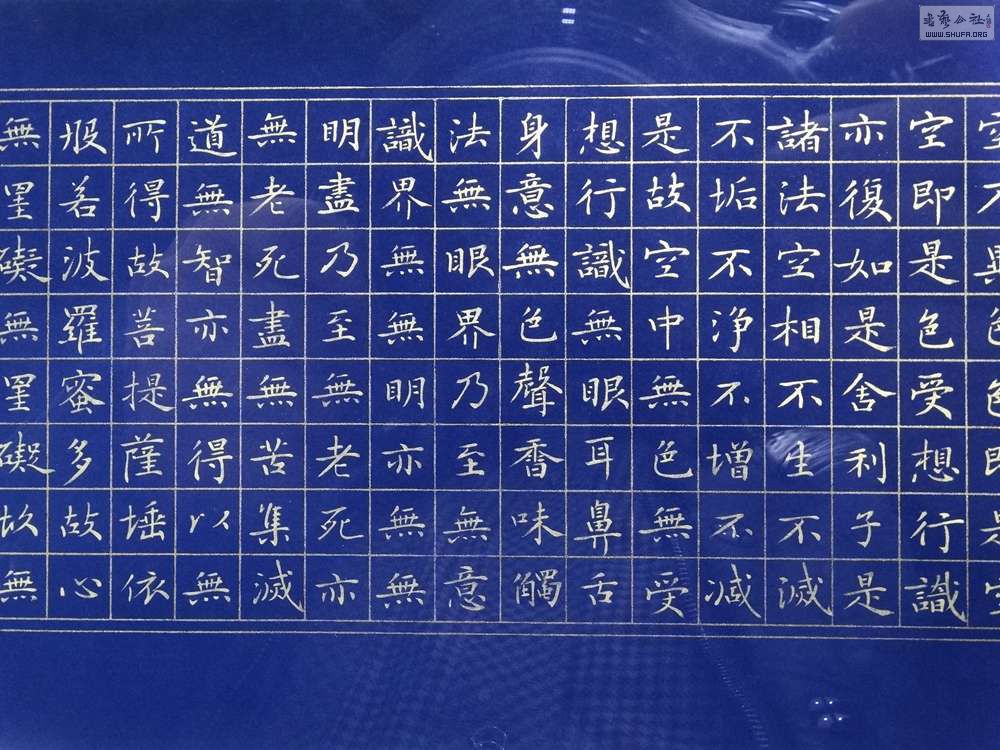 空不異色色即是空
空即是色受想行識
亦復如是舍利子是
諸法空相不生不滅
不垢不净不增不減
是故空中無色無受
想行識無眼耳鼻舌
身意無色聲香味觸
法無眼界乃至無意
識界無無明亦無無
明盡乃至無老死亦
無老死盡無苦集滅
道無智亦無得以無
所得故菩提薩埵依
般若波羅蜜多故心
無罣礙無罣礙故無
書藝公社
WWW.SHUFA.ORG